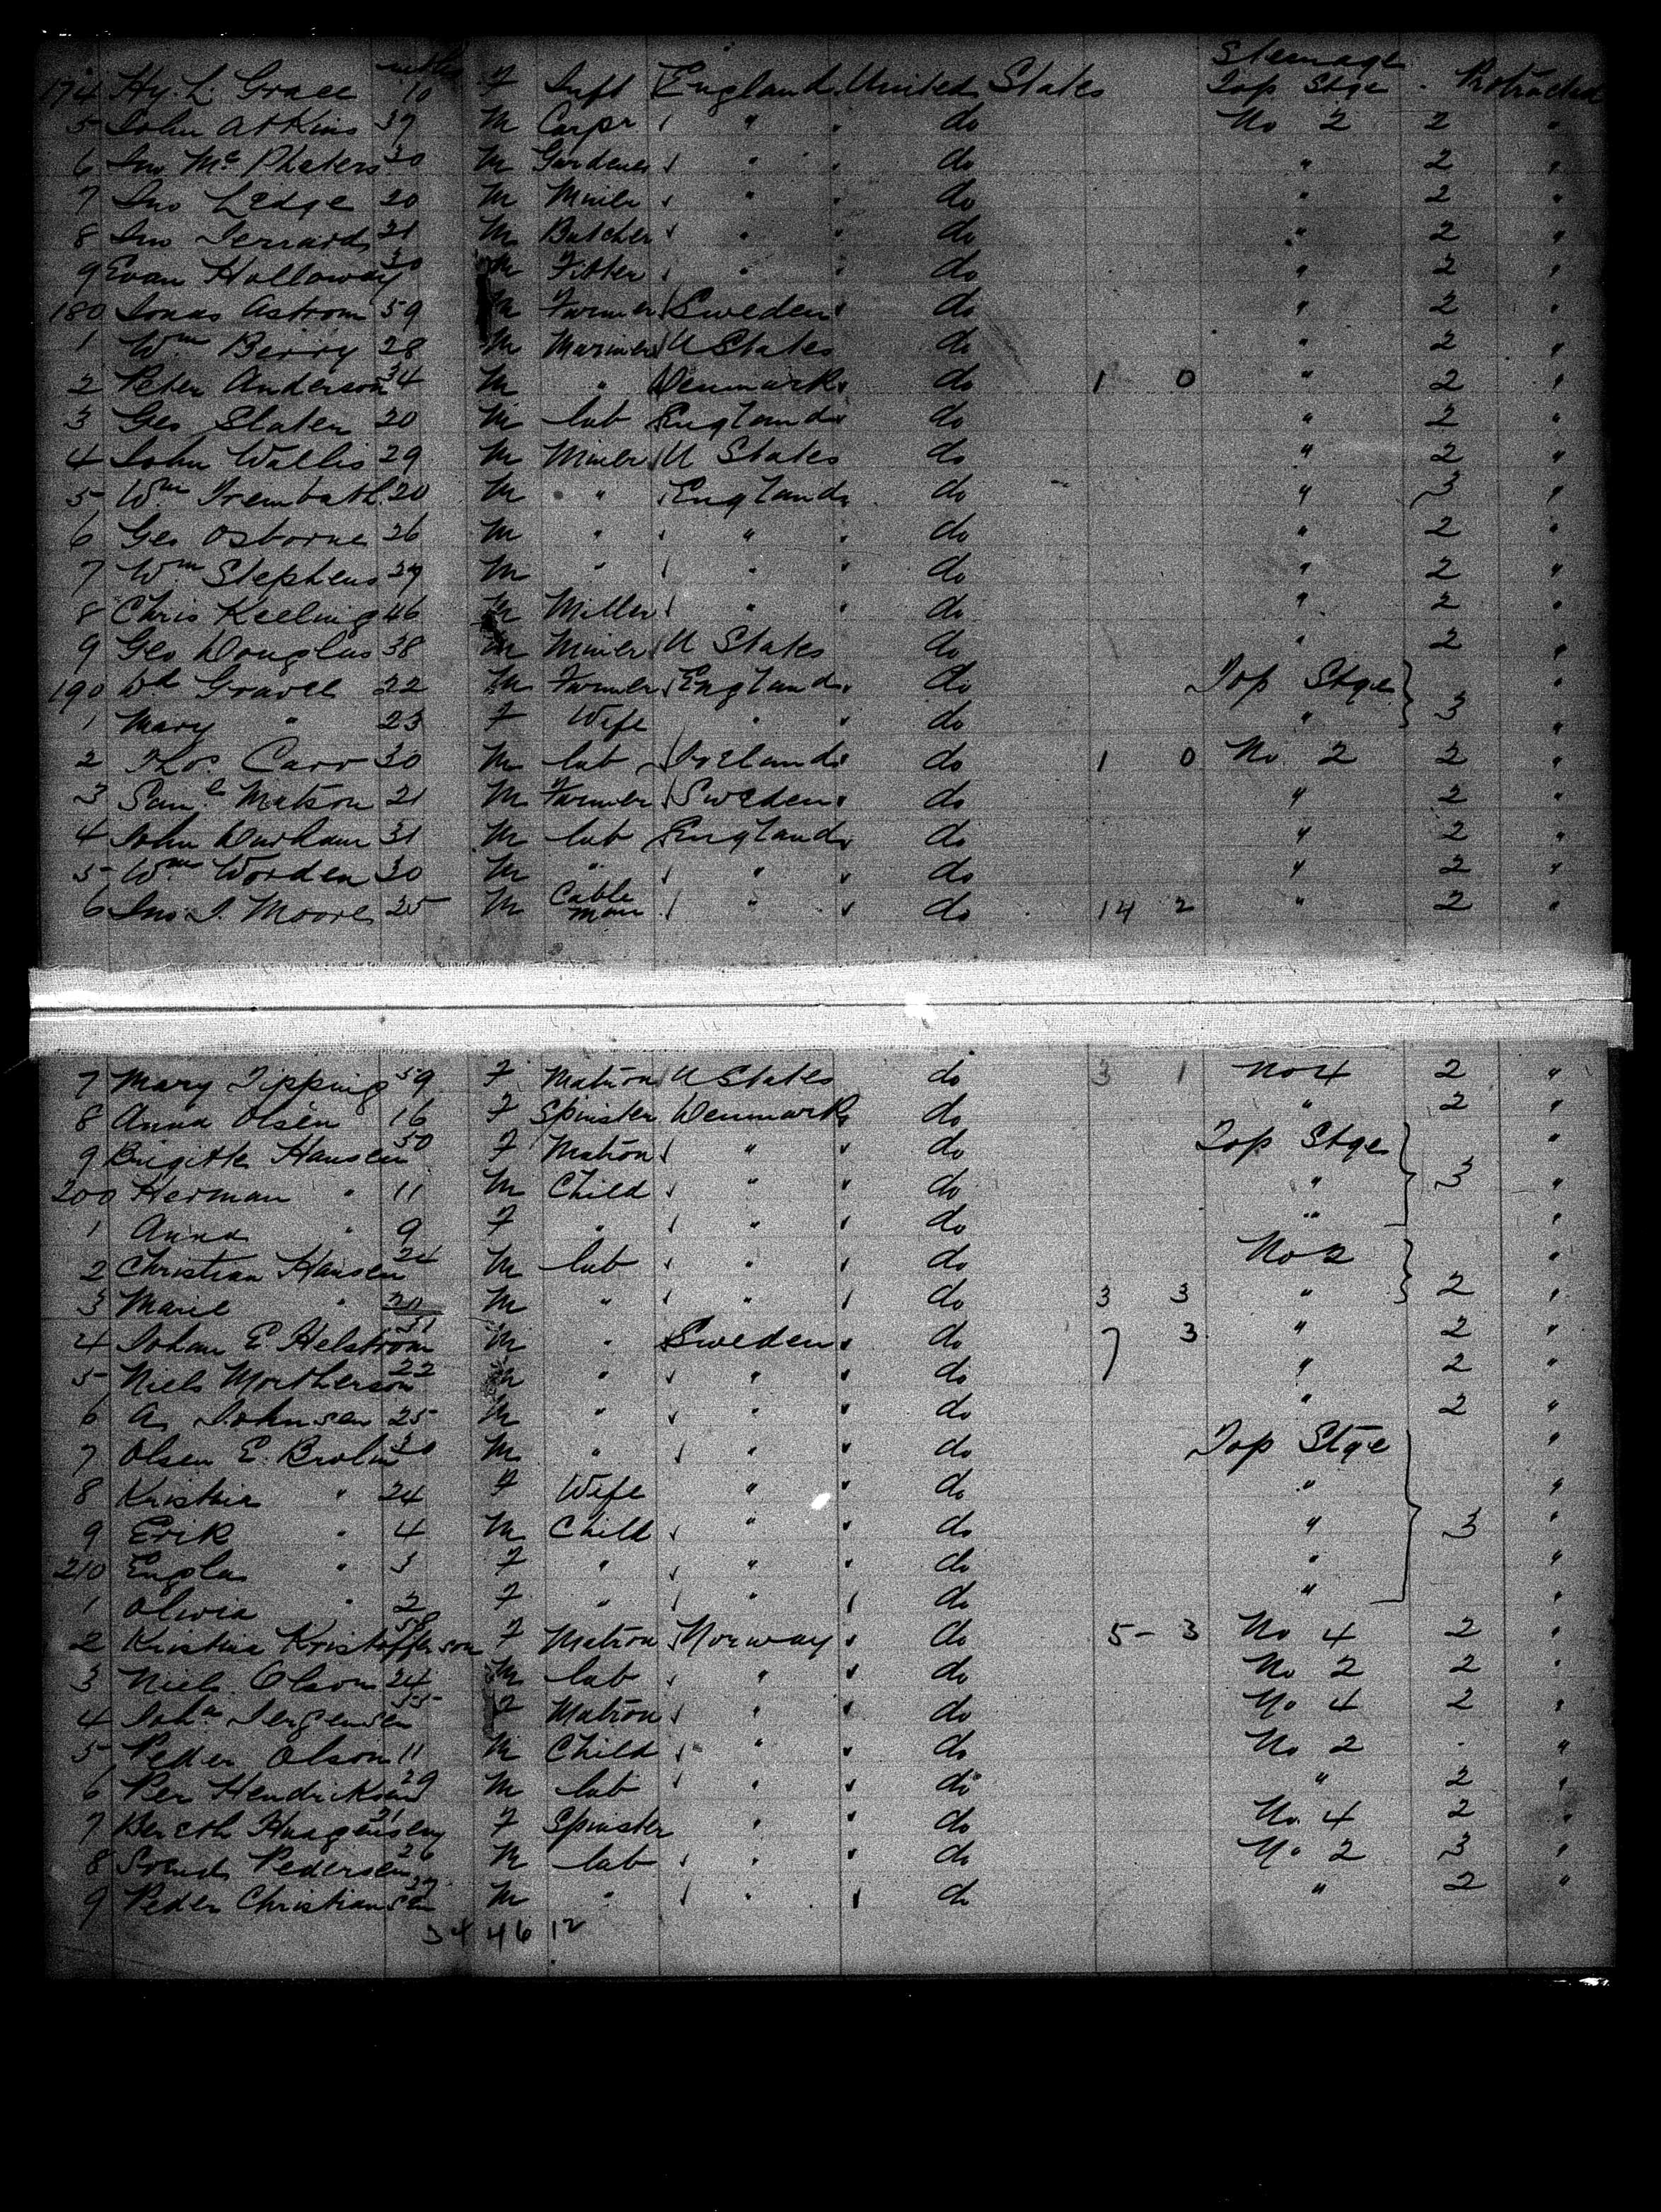 mths Steerage
174 Hy. L. Grace 10 F Inft England United States Top Stge Protracted
5 John Atkins 39 M Carpr " " do No 2 2 "
6 Jno McPheters 30 M Gardener " " do " 2 "
7 Jno Ledge 20 M Miner " " do " 2 "
8 Jno Jerrard 21 M Butcher " " do " 2 "
9 Evan Holloway 30 M Fitter " " do " 2 "
180 Jonas Astrom 59 M Farmer Sweden do " 2 "
1 Wm Berry 28 M Mariner U States do " 2 "
2 Peter Anderson 34 M " Denmark do 1 0 " 2 "
3 Geo Slater 20 M lab England do " 2 "
4 John Wallis 29 M Miner U States do " 2 "
5 Wm Trembath 20 M " England do " 3 "
6 Geo Osborne 26 M " " do " 2 "
7 Wm Stephens 29 M " " do " 2 "
8 Chris Keeling 46 M Miller " do " 2 "
9 Geo Douglas 38 M Miner U States do " 2 "
190 Wd Gravel 22 M Farmer England do Top Stge "
1 Mary " 23 F Wife " " do " 3 "
2 Thos. Carr 30 M lab Ireland do 1 0 No 2 2 "
3 Saml Matson 21 M Farmer Sweden do " 2 "
4 John Durham 31 M lab England do " 2 "
5 Wm Worden 30 M " " do " 2 "
6 Jno. J. Moore 25 M Cable man " do 14 2 " 2 "
7 Mary Tipping 59 F Matron U States do 3 1 No 4 2 "
8 Anna Olsen 16 F Spinster Denmark do " 2 "
9 Brigitte Hansen 50 F Matron " do Top Stge "
200 Herman " 11 M Child " do " 3 "
1 Anna " 9 F " " do " "
2 Christian Hansen 24 M lab " do No 2 "
3 Marie " 20 M " " do 3 3 " 2 "
4 Johan E. Helstrom 31 M " Sweden do 7 3 " 2 "
5 Niels Mortherson 22 M " " do " 2 "
6 A. Johnsen 25 M " " do " 2 "
7 Olsen E. Brolin 30 M " " do Top Stge "
8 Kristina " 24 F Wife " do " "
9 Erik " 4 M Child " do " 3 "
210 Engla " 3 F " " do " "
1 Olivia " 2 F " " do " "
2 Kristina Kristofferson 58 F Matron Norway do 5 3 No 4 2 "
3 Niels Olson 24 M lab " do No 2 2 "
4 Joha Jergensen 55 F Matron " do No 4 2 "
5 Peder Olson 11 M Child " do No 2 "
6 Per Hendriksen 29 M lab " do " 2 "
7 Bereth Haagensen 21 F Spinster " do No. 4 2 "
8 Svend Pedersen 26 M lab " do No 2 3 "
9 Peder Christiansen 27 M " " do " 2 "
34 46 12